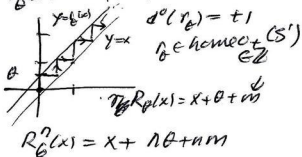 θ
y=R̃_θ(x)
y=x
θ
d°(r_θ) = +1
r_θ ∈ homeo₊(S¹)
∈ℤ
R_θ(x) = x+θ+m
R_θⁿ(x) = x + nθ+nm